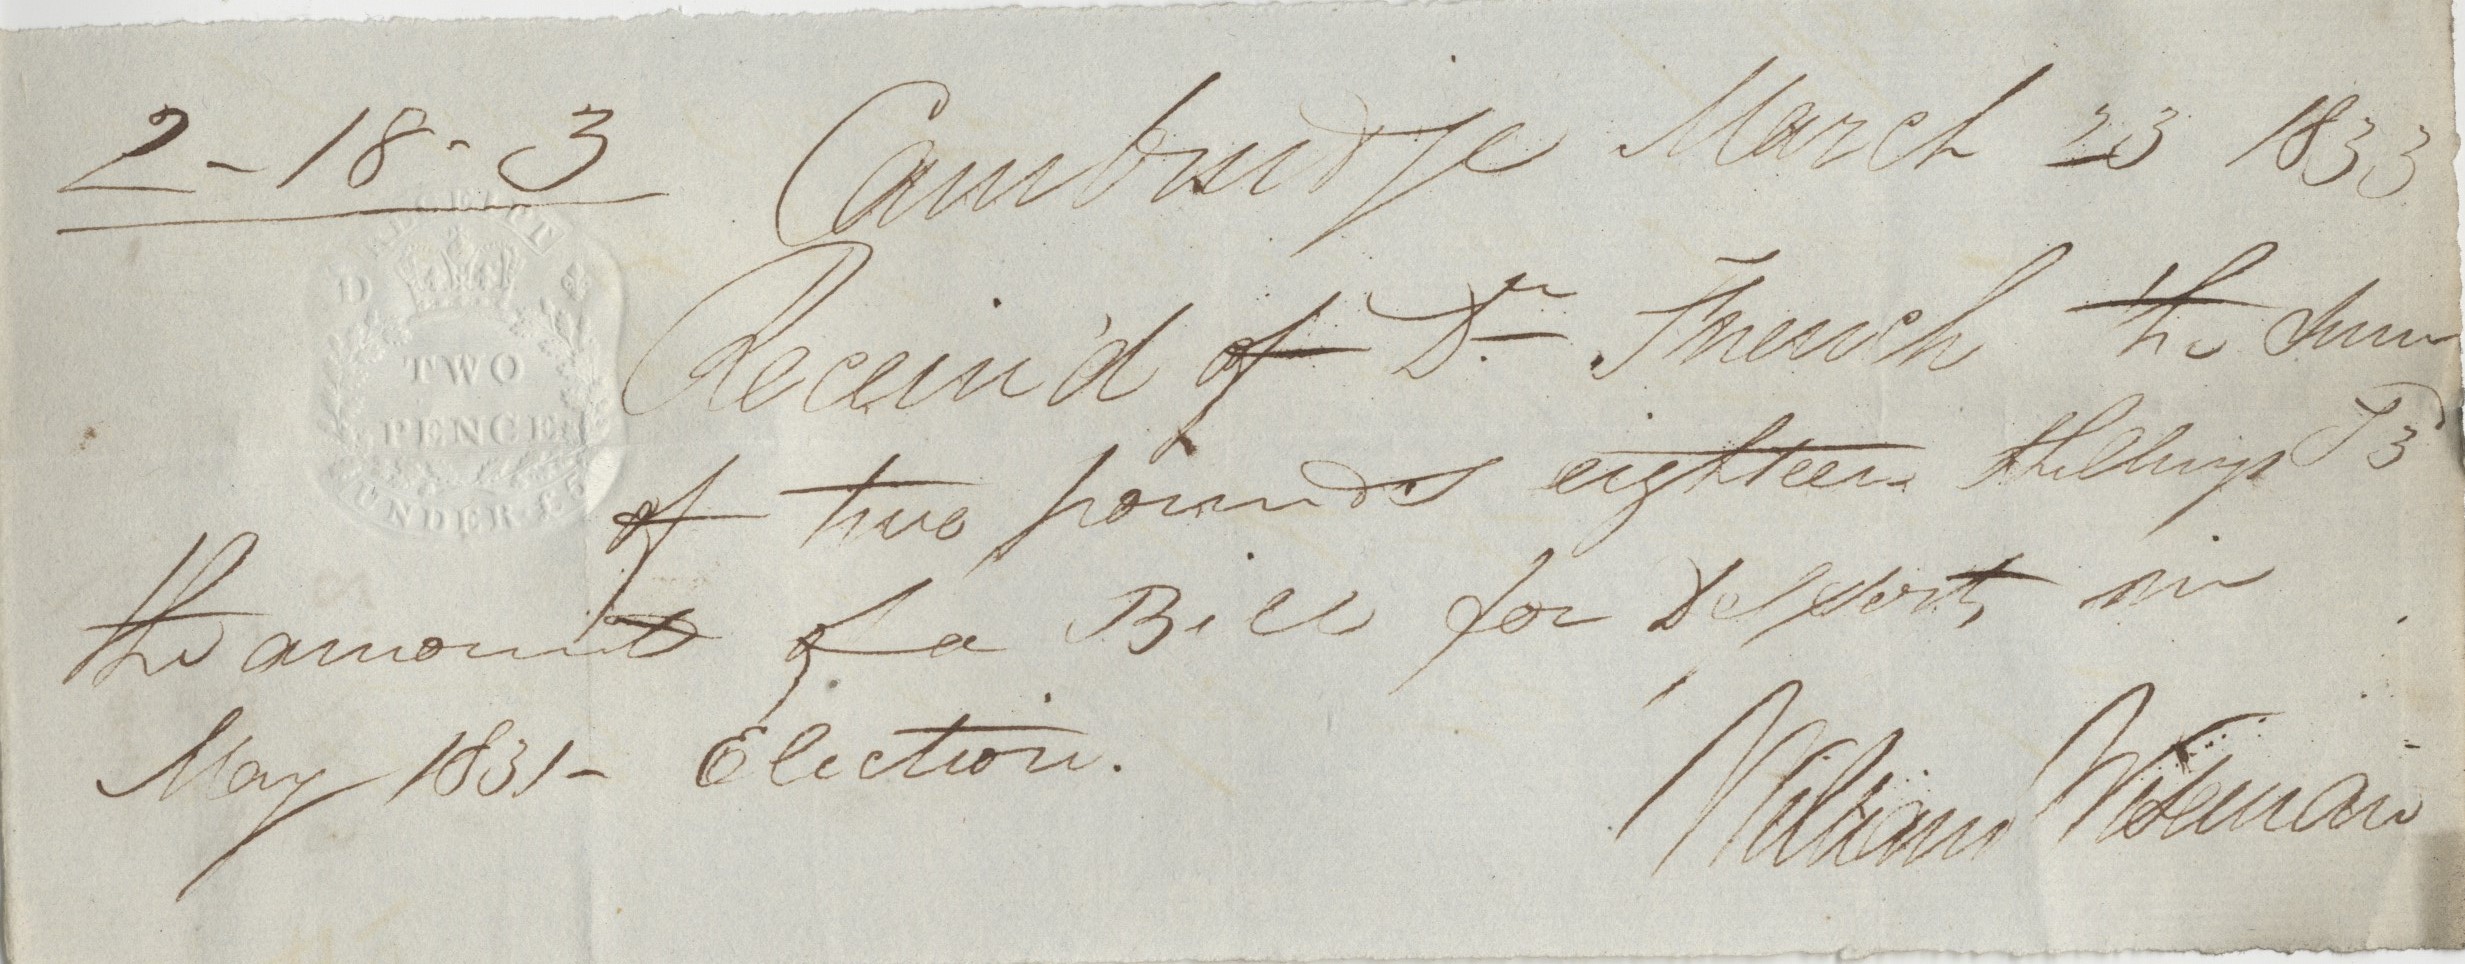 2 - 18 - 3 Cambridge March 23 1833
RECEIPT
D
TWO
PENCE
UNDER £5
Receiv'd of Dr. French the Sum
of two pounds eighteen shillings & 3
the amount of a Bill for Dessert, in
May 1831 - Election.
William Wiseman